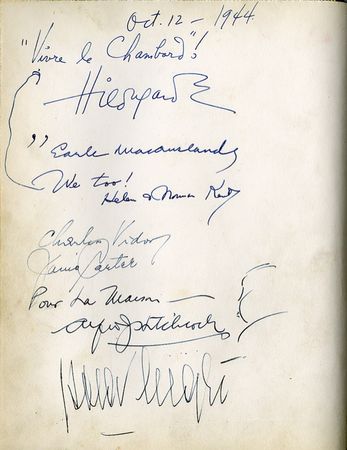 Oct. 12 - 1944
"Vivre le Chambord"!
Hildegarde
" Earle MacAusland
We too!
Helen & Norman Katz
Charles Vidor
Pour La Maison —
Alfred J Hitchcock